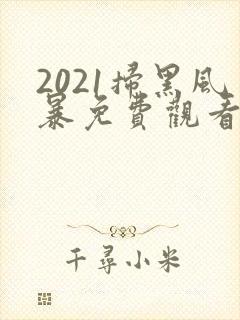 2021掃黑風
暴免費觀看
千尋小米